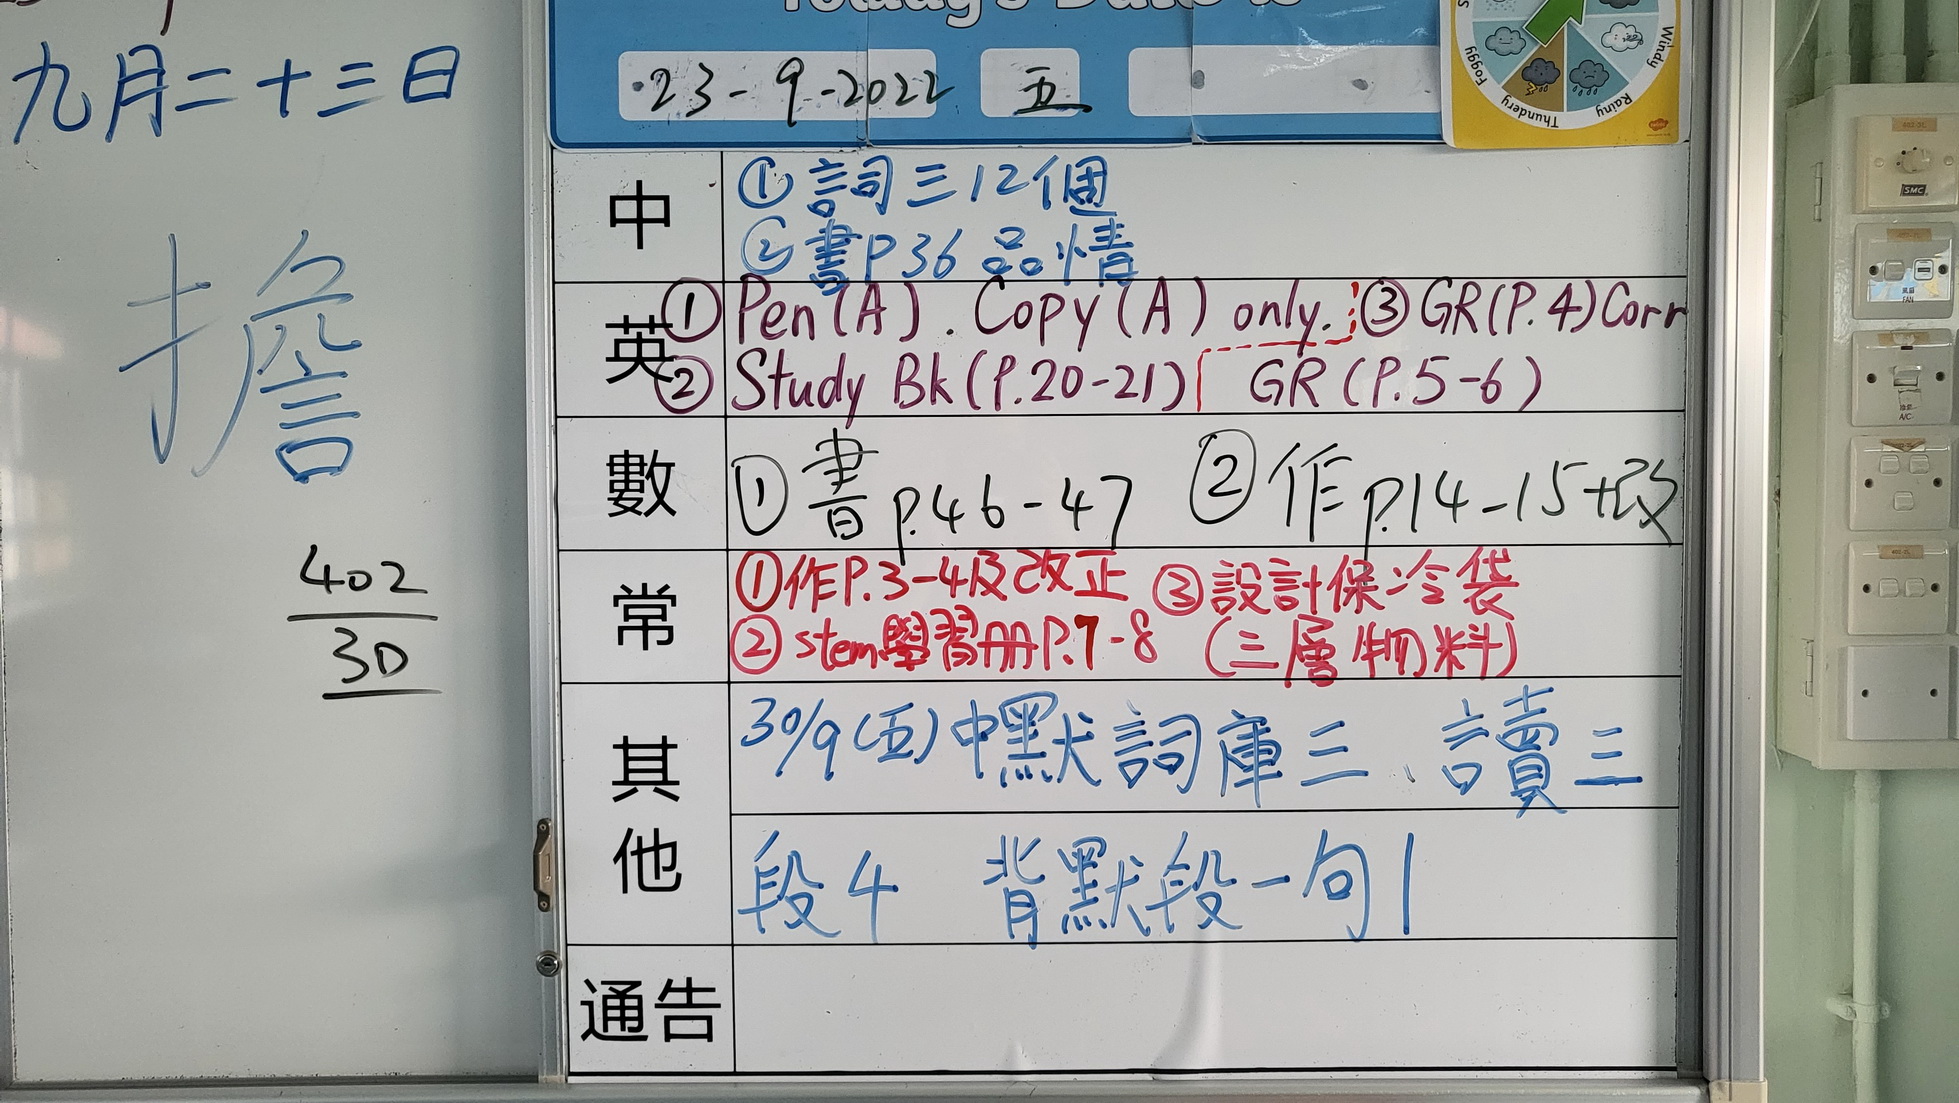 九月二十三日
擔
402
30
Today's Date is
23-9-2022 五
Foggy
Thundery
Rainy
Windy
中
①詞三12個
②書P36品情
英
①Pen(A). Copy(A) only. ③GR(P.4)Corr
②Study Bk(P.20-21) GR(P.5-6)
數
①書p.46-47 ②作p.14-15+改
常
①作P.3-4及改正 ③設計保冷袋
②stem學習冊P.7-8 (三層物料)
其他
30/9(五)中默詞庫三、讀三
段4 背默段一句1
通告
SMC
FAN
A/C